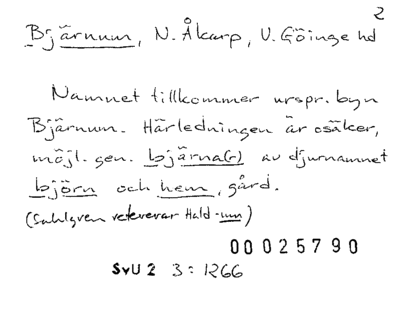 2
Bjärnum, N. Åkarp, V. Göinge hd
Namnet tillkommer urspr. byn
Bjärnum. Härledningen är osäker,
möjl. gen. bjärna(r) av djurnamnet
björn och hem, gård.
(Sahlgren refererar Hald -um)
00025790
SvU 2 3: 1266